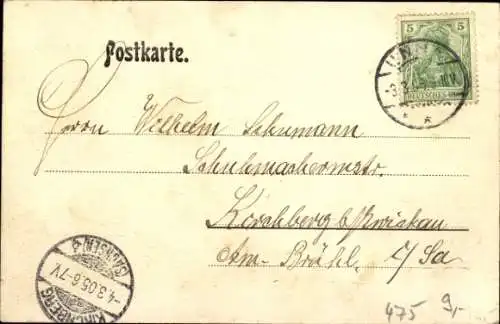 Postkarte.
5 5
DEUTSCHES
UNNA
3.3.
Herrn Wilhelm Schumann
Schuhmachermstr.
Kirchberg b/Zwickau
Am Brühl. i/Sa
KIRCHBERG
-4.3.05.6-7V
(SACHSEN)
475 9,-